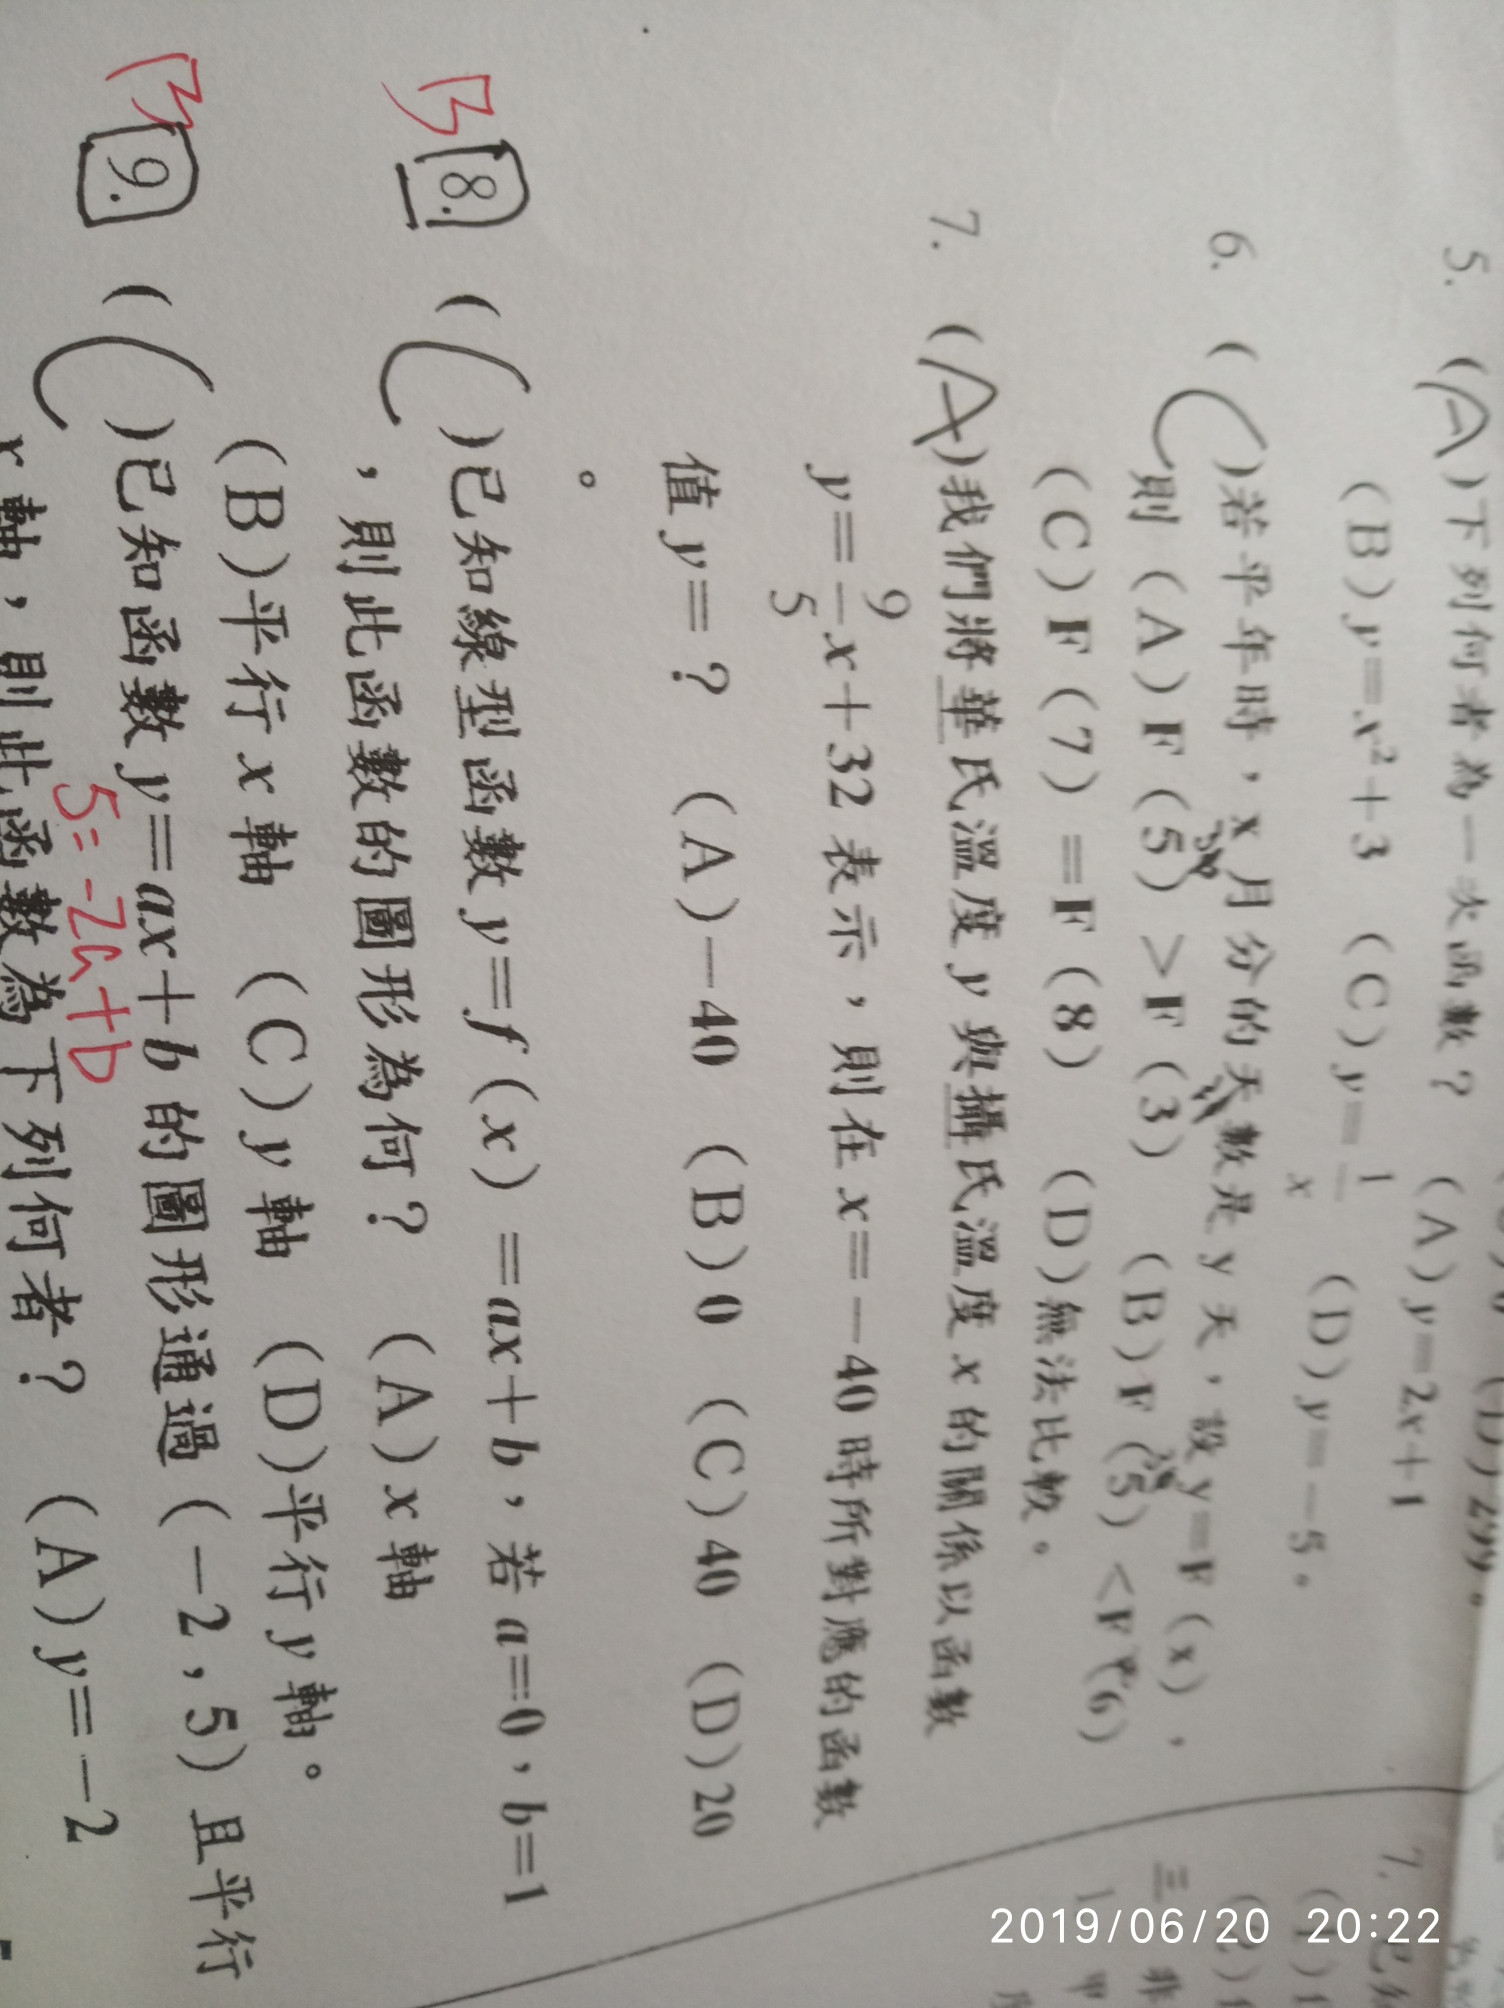 5. (A)下列何者為一次函數？ (A)y=2x+1
(B)y=x²+3 (C)y=1/x (D)y=-5。
6. (C)若平年時，x月分的天數是y天，設y=F(x)，
則 (A)F(5)>F(3) (B)F(5)<F(6)
(C)F(7)=F(8) (D)無法比較。
7. (A)我們將華氏溫度y與攝氏溫度x的關係以函數
y=9/5x+32表示，則在x=-40時所對應的函數
值y=？ (A)-40 (B)0 (C)40 (D)20
。
B 8. (C)已知線型函數y=f(x)=ax+b，若a=0，b=1
，則此函數的圖形為何？ (A)x軸
(B)平行x軸 (C)y軸 (D)平行y軸。
B 9. (C)已知函數y=ax+b的圖形通過(-2,5)且平行
5=-2a+b
x軸，則此函數為下列何者？ (A)y=-2
7.
三
2019/06/20 20:22